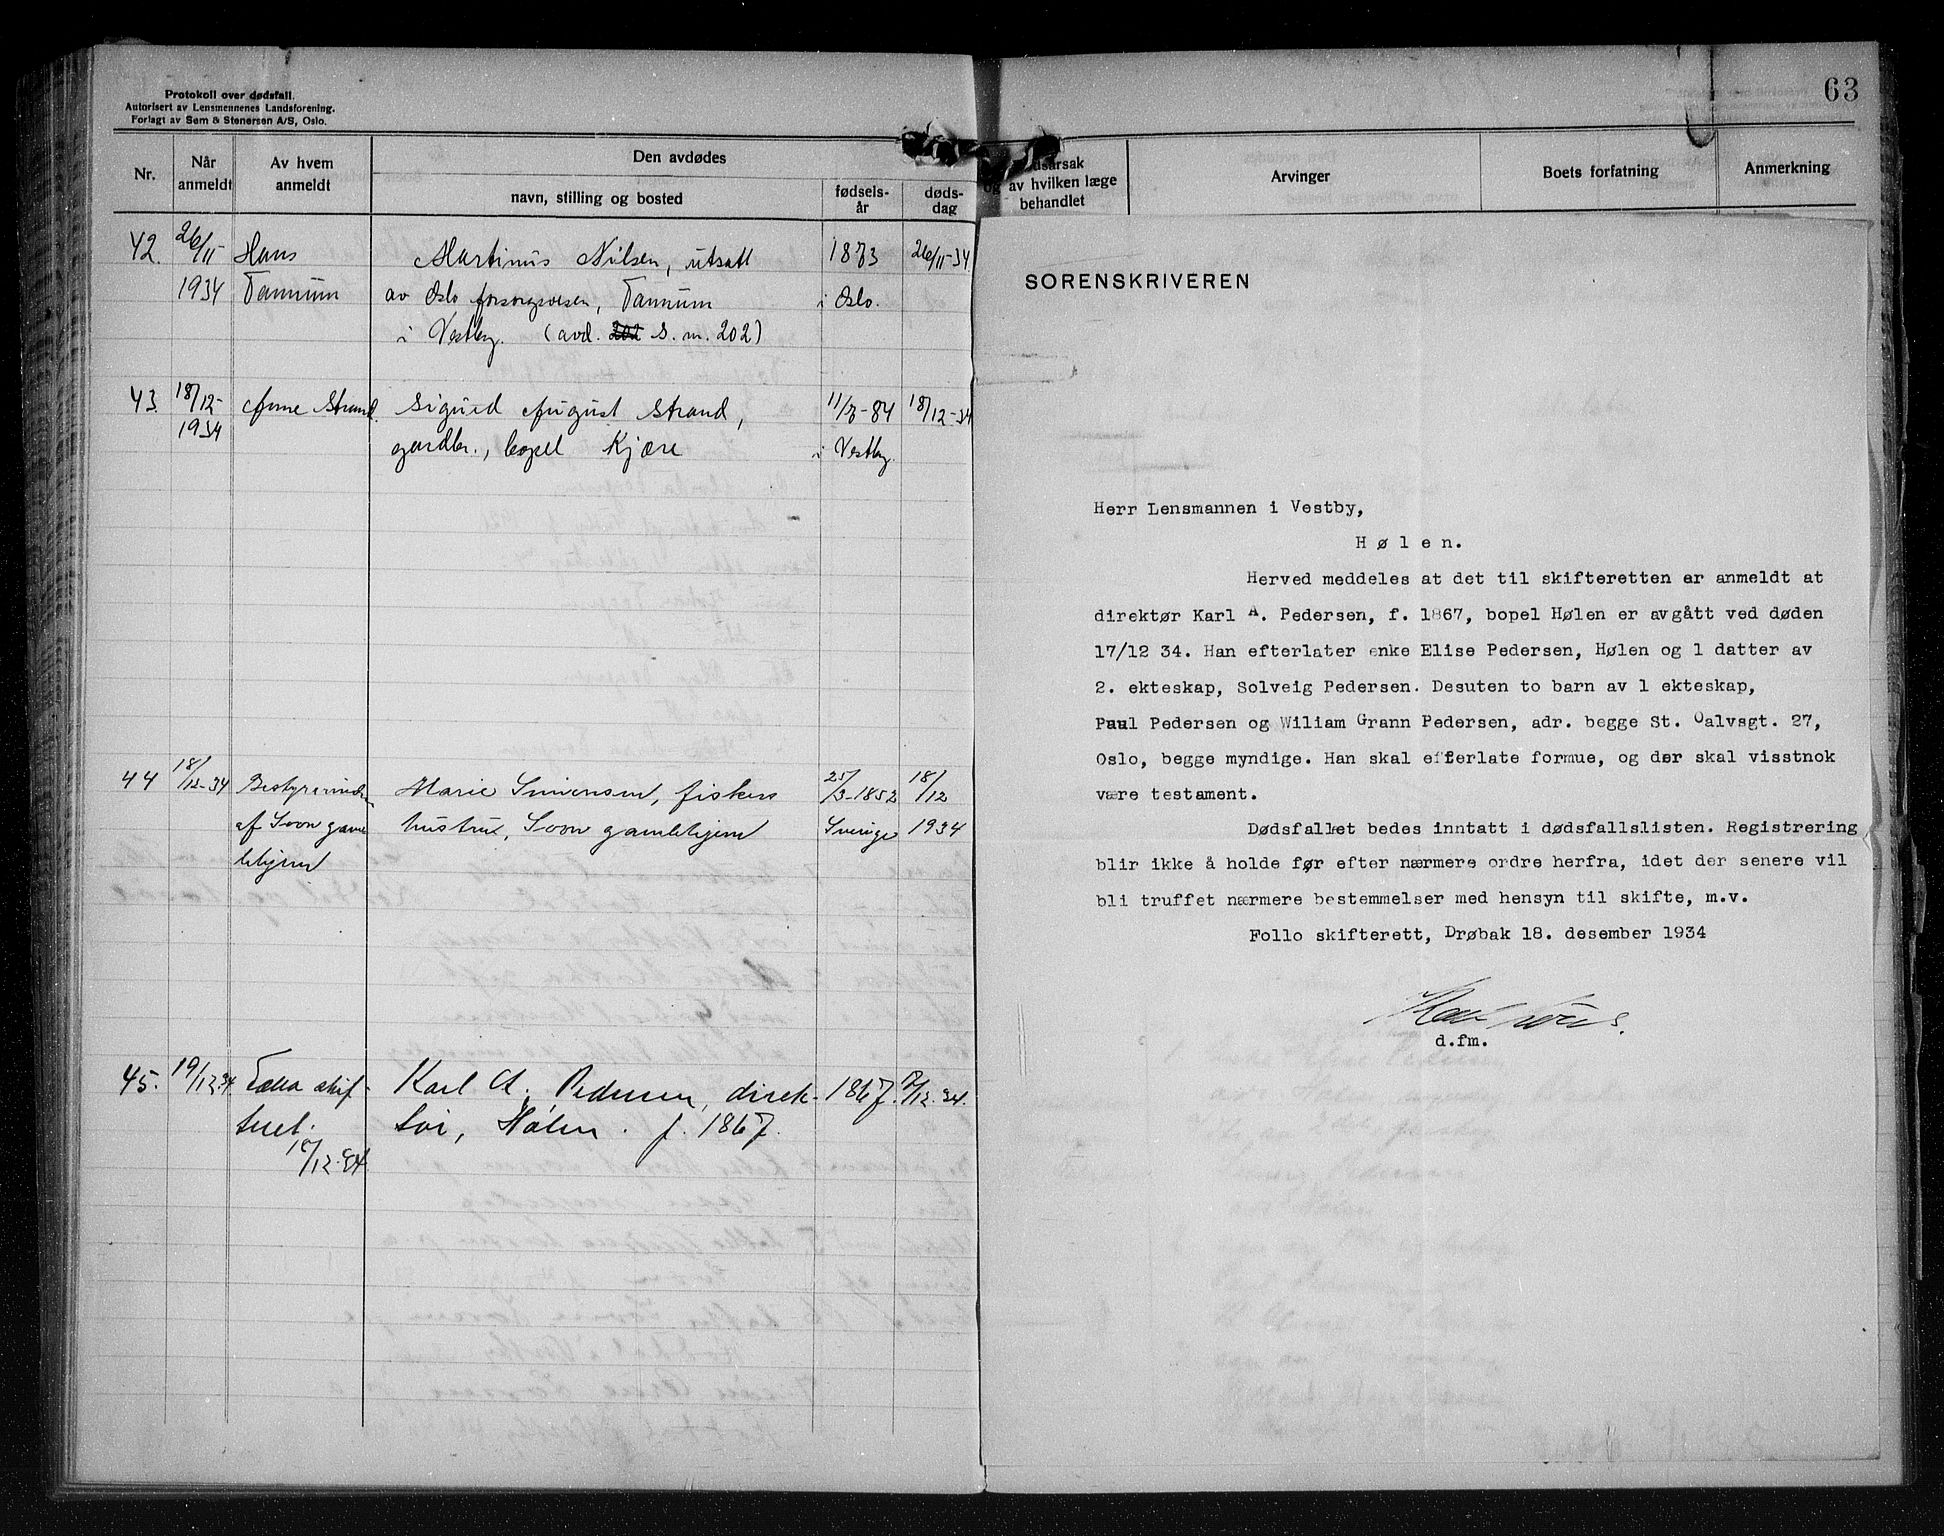 Protokoll over dødsfall.
Autorisert av Lensmennenes Landsforening.
Forlagt av Sem & Stenersen A/S, Oslo.
Nr.
Når anmeldt
Av hvem anmeldt
Den avdødes
navn, stilling og bosted
fødsels-år
døds-dag
av hvilken læge
behandlet
Arvinger
Boets forfatning
Anmerkning
63
42. 26/11 Hans Martinus Nilsen, utsatt 1873 26/11-34.
1934 Tannum av Oslo forsorgsvesen, Tannum i Oslo.
i Vestby. (avd. 202 S. m. 202)
43. 18/12- Arne Strand. Sigurd August Strand, 11/8-84 18/12-34
1934 gardbr., bopel Kjære i Vestby.
44 18/12-34 Bestyrerinden Marie Simensen, fiskers 25/3-1852 18/12
af Soon gamle hustru, Soon gamlehjem Sverige 1934
hjem
45. 19/12.34. Follo skif- Karl A. Pedersen, direk- 1867. 17/12.34.
terett. tør, Hølen. f. 1867.
18/12.34.
SORENSKRIVEREN
Herr Lensmannen i Vestby,
Hølen.
Herved meddeles at det til skifteretten er anmeldt at
direktør Karl A. Pedersen, f. 1867, bopel Hølen er avgått ved døden
17/12 34. Han efterlater enke Elise Pedersen, Hølen og 1 datter av
2. ekteskap, Solveig Pedersen. Desuten to barn av 1 ekteskap,
Paul Pedersen og Wiliam Grann Pedersen, adr. begge St. Oalvsgt. 27,
Oslo, begge myndige. Han skal efterlate formue, og der skal visstnok
være testament.
Dødsfallet bedes inntatt i dødsfallslisten. Registrering
blir ikke å holde før efter nærmere ordre herfra, idet der senere vil
bli truffet nærmere bestemmelser med hensyn til skifte, m.v.
Follo skifterett, Drøbak 18. desember 1934
d.fm.